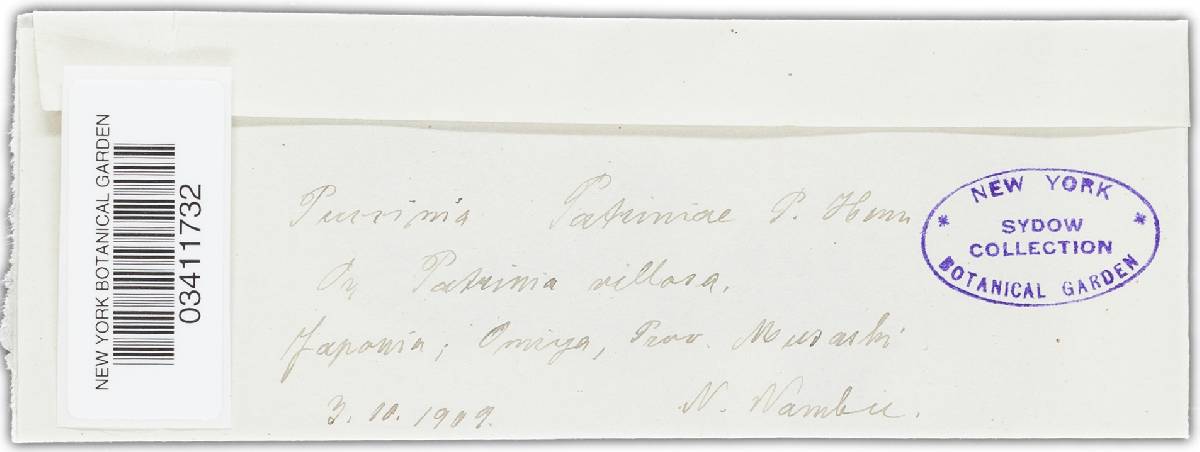 NEW YORK BOTANICAL GARDEN
03411732
Puccinia Patriniae P. Henn
On Patrinia villosa.
Japonia; Omiya, Prov. Musashi
3. 10. 1909.
N. Nambu.
NEW YORK
SYDOW
COLLECTION
BOTANICAL GARDEN